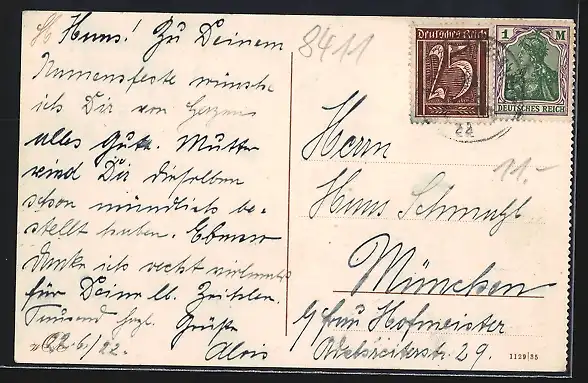 Lb. Hans! Zu Deinem
Namensfeste wünsche
ich Dir von Herzen
alles Gute. Mutter
wird Dir dieselben
schon mündlich be-
stellt haben. Ebenso
danke ich recht vielmals
für Deine lb. Zeilen.
Tausend herzl.
Grüße
22.6/22. Alois
8411
Deutsches Reich
25
1 M
DEUTSCHES REICH
22
11.-
Herrn
Hans Schmahl
München
b/ Frau Hofmeister
Adelzreiterstr. 29.
1129/35